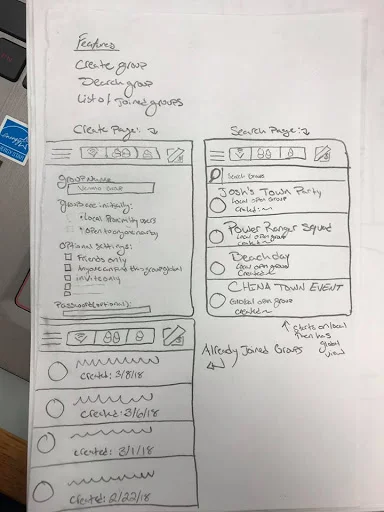 Features
Create group
Search group
List of joined groups
Create Page:
Search Page:
Group Name
Group one initially:
Local Proximity users
open to anyone nearby
Optional settings:
Friends only
Anyone can find this group global
invite only
Password (optional)
Search Groups
Josh's Town Party
Local open Group
created:
Power Ranger Squad
Local open group
created:
Beach day
Local open group
Created:
CHINA TOWN EVENT
Global open group
created:
starts on local
then has
global
view
Already Joined Groups
created: 3/8/18
created: 3/6/18
created: 3/1/18
created: 2/22/18